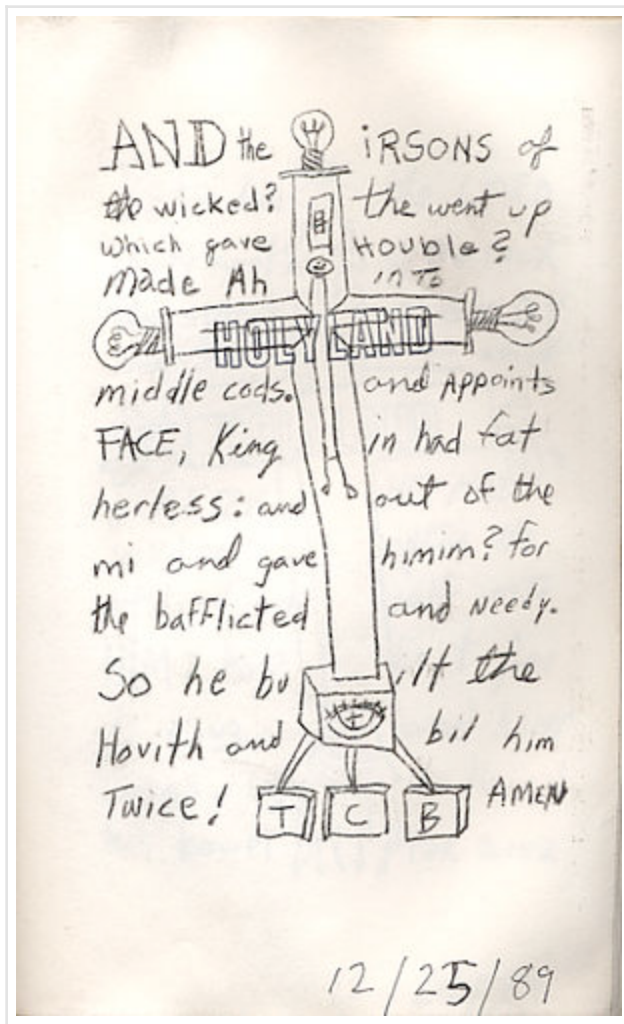 AND the iRSONS of
the wicked? the went up
which gave Houble?
made Ah into
HOLY LAND
middle cods. and Appoints
FACE, King in had fat
herless: and out of the
mi and gave himim? for
the bafflicted and Needy.
So he built the
Hovith and bil him
Twice! T C B AMEN
12/25/89